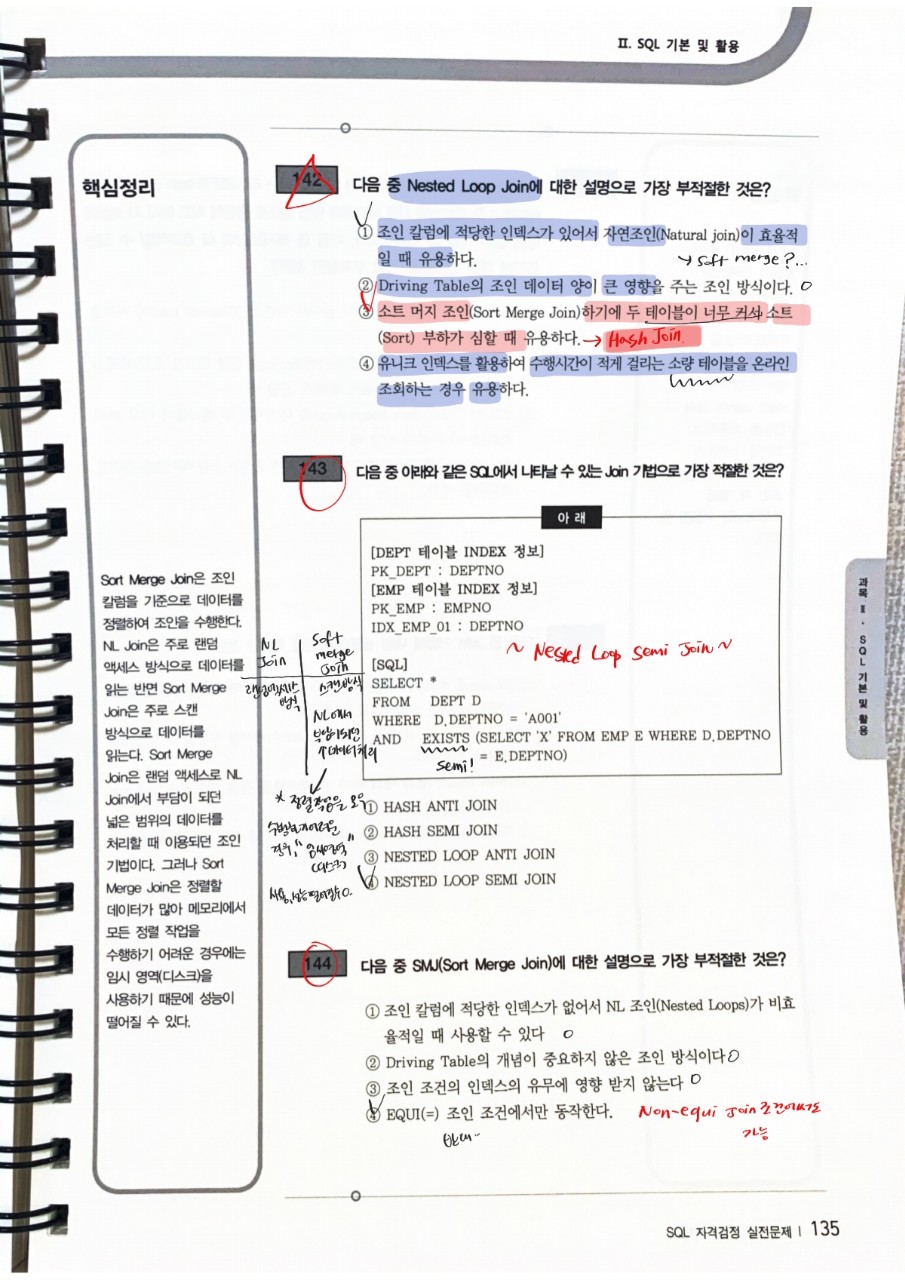 II. SQL 기본 및 활용
핵심정리
Sort Merge Join은 조인
칼럼을 기준으로 데이터를
정렬하여 조인을 수행한다.
NL Join은 주로 랜덤
액세스 방식으로 데이터를
읽는 반면 Sort Merge
Join은 주로 스캔
방식으로 데이터를
읽는다. Sort Merge
Join은 랜덤 액세스로 NL
Join에서 부담이 되던
넓은 범위의 데이터를
처리할 때 이용되던 조인
기법이다. 그러나 Sort
Merge Join은 정렬할
데이터가 많아 메모리에서
모든 정렬 작업을
수행하기 어려운 경우에는
임시 영역(디스크)을
사용하기 때문에 성능이
떨어질 수 있다.
142 다음 중 Nested Loop Join에 대한 설명으로 가장 부적절한 것은?
① 조인 칼럼에 적당한 인덱스가 있어서 자연조인(Natural join)이 효율적
일 때 유용하다.
→ Sort merge?...
② Driving Table의 조인 데이터 양이 큰 영향을 주는 조인 방식이다. O
③ 소트 머지 조인(Sort Merge Join)하기에 두 테이블이 너무 커서 소트
(Sort) 부하가 심할 때 유용하다. → Hash Join.
④ 유니크 인덱스를 활용하여 수행시간이 적게 걸리는 소량 테이블을 온라인
조회하는 경우 유용하다.
143 다음 중 아래와 같은 SQL에서 나타날 수 있는 Join 기법으로 가장 적절한 것은?
아 래
[DEPT 테이블 INDEX 정보]
PK_DEPT : DEPTNO
[EMP 테이블 INDEX 정보]
PK_EMP : EMPNO
IDX_EMP_01 : DEPTNO
~ Nested Loop Semi Join ~
[SQL]
SELECT *
FROM DEPT D
WHERE D.DEPTNO = 'A001'
AND EXISTS (SELECT 'X' FROM EMP E WHERE D.DEPTNO
= E.DEPTNO)
semi!
NL
Join
Sort
merge
Join
랜덤액세스
방식
스캔방식
NL에서
부담이되던
* 정렬작업을 모두
수행하기 어려운
경우, "임시영역"
(디스크)
① HASH ANTI JOIN
② HASH SEMI JOIN
③ NESTED LOOP ANTI JOIN
④ NESTED LOOP SEMI JOIN
144 다음 중 SMJ(Sort Merge Join)에 대한 설명으로 가장 부적절한 것은?
① 조인 칼럼에 적당한 인덱스가 없어서 NL 조인(Nested Loops)가 비효
율적일 때 사용할 수 있다 O
② Driving Table의 개념이 중요하지 않은 조인 방식이다 O
③ 조인 조건의 인덱스의 유무에 영향 받지 않는다 O
④ EQUI(=) 조인 조건에서만 동작한다. Non-equi Join 조건에서도
가능
과목 II · SQL 기본 및 활용
SQL 자격검정 실전문제 | 135